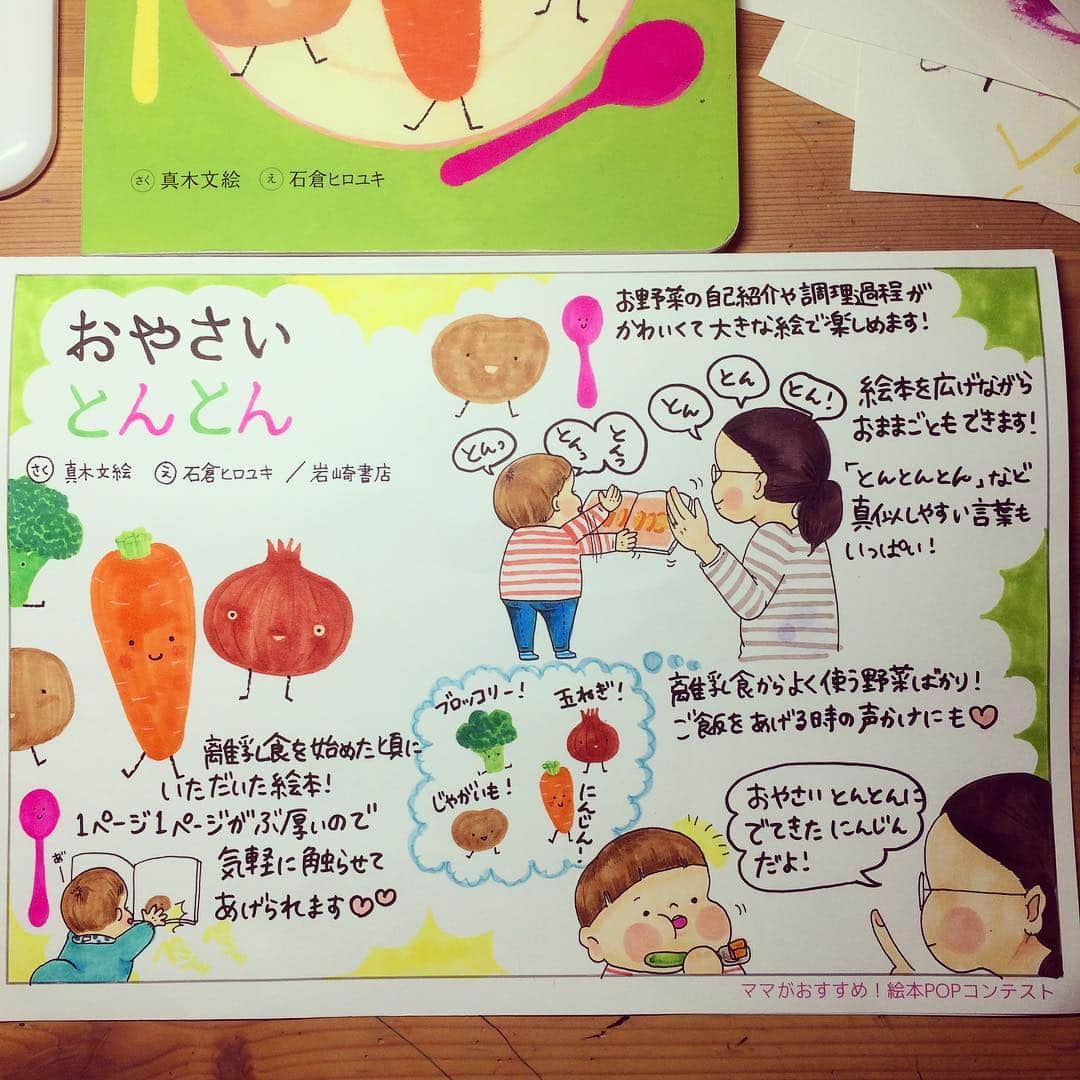 さく 真木文絵 え 石倉ヒロユキ
おやさい
とんとん
さく 真木文絵 え 石倉ヒロユキ / 岩崎書店
お野菜の自己紹介や調理過程が
かわいくて大きな絵で楽しめます!
とんっ
とんっ
とんっ
とん
とん
とん!
絵本を広げながら
おままごともできます!
「とんとんとん」など
真似しやすい言葉も
いっぱい!
離乳食を始めた頃に
いただいた絵本!
1ページ1ページがぶ厚いので
気軽に触らせて
あげられます♡♡
ブロッコリー!
玉ねぎ!
じゃがいも!
にんじん!
離乳食からよく使う野菜ばかり!
ご飯をあげる時の声かけにも♡
おやさいとんとんに
でてきたにんじん
だよ!
ママがおすすめ!絵本POPコンテスト